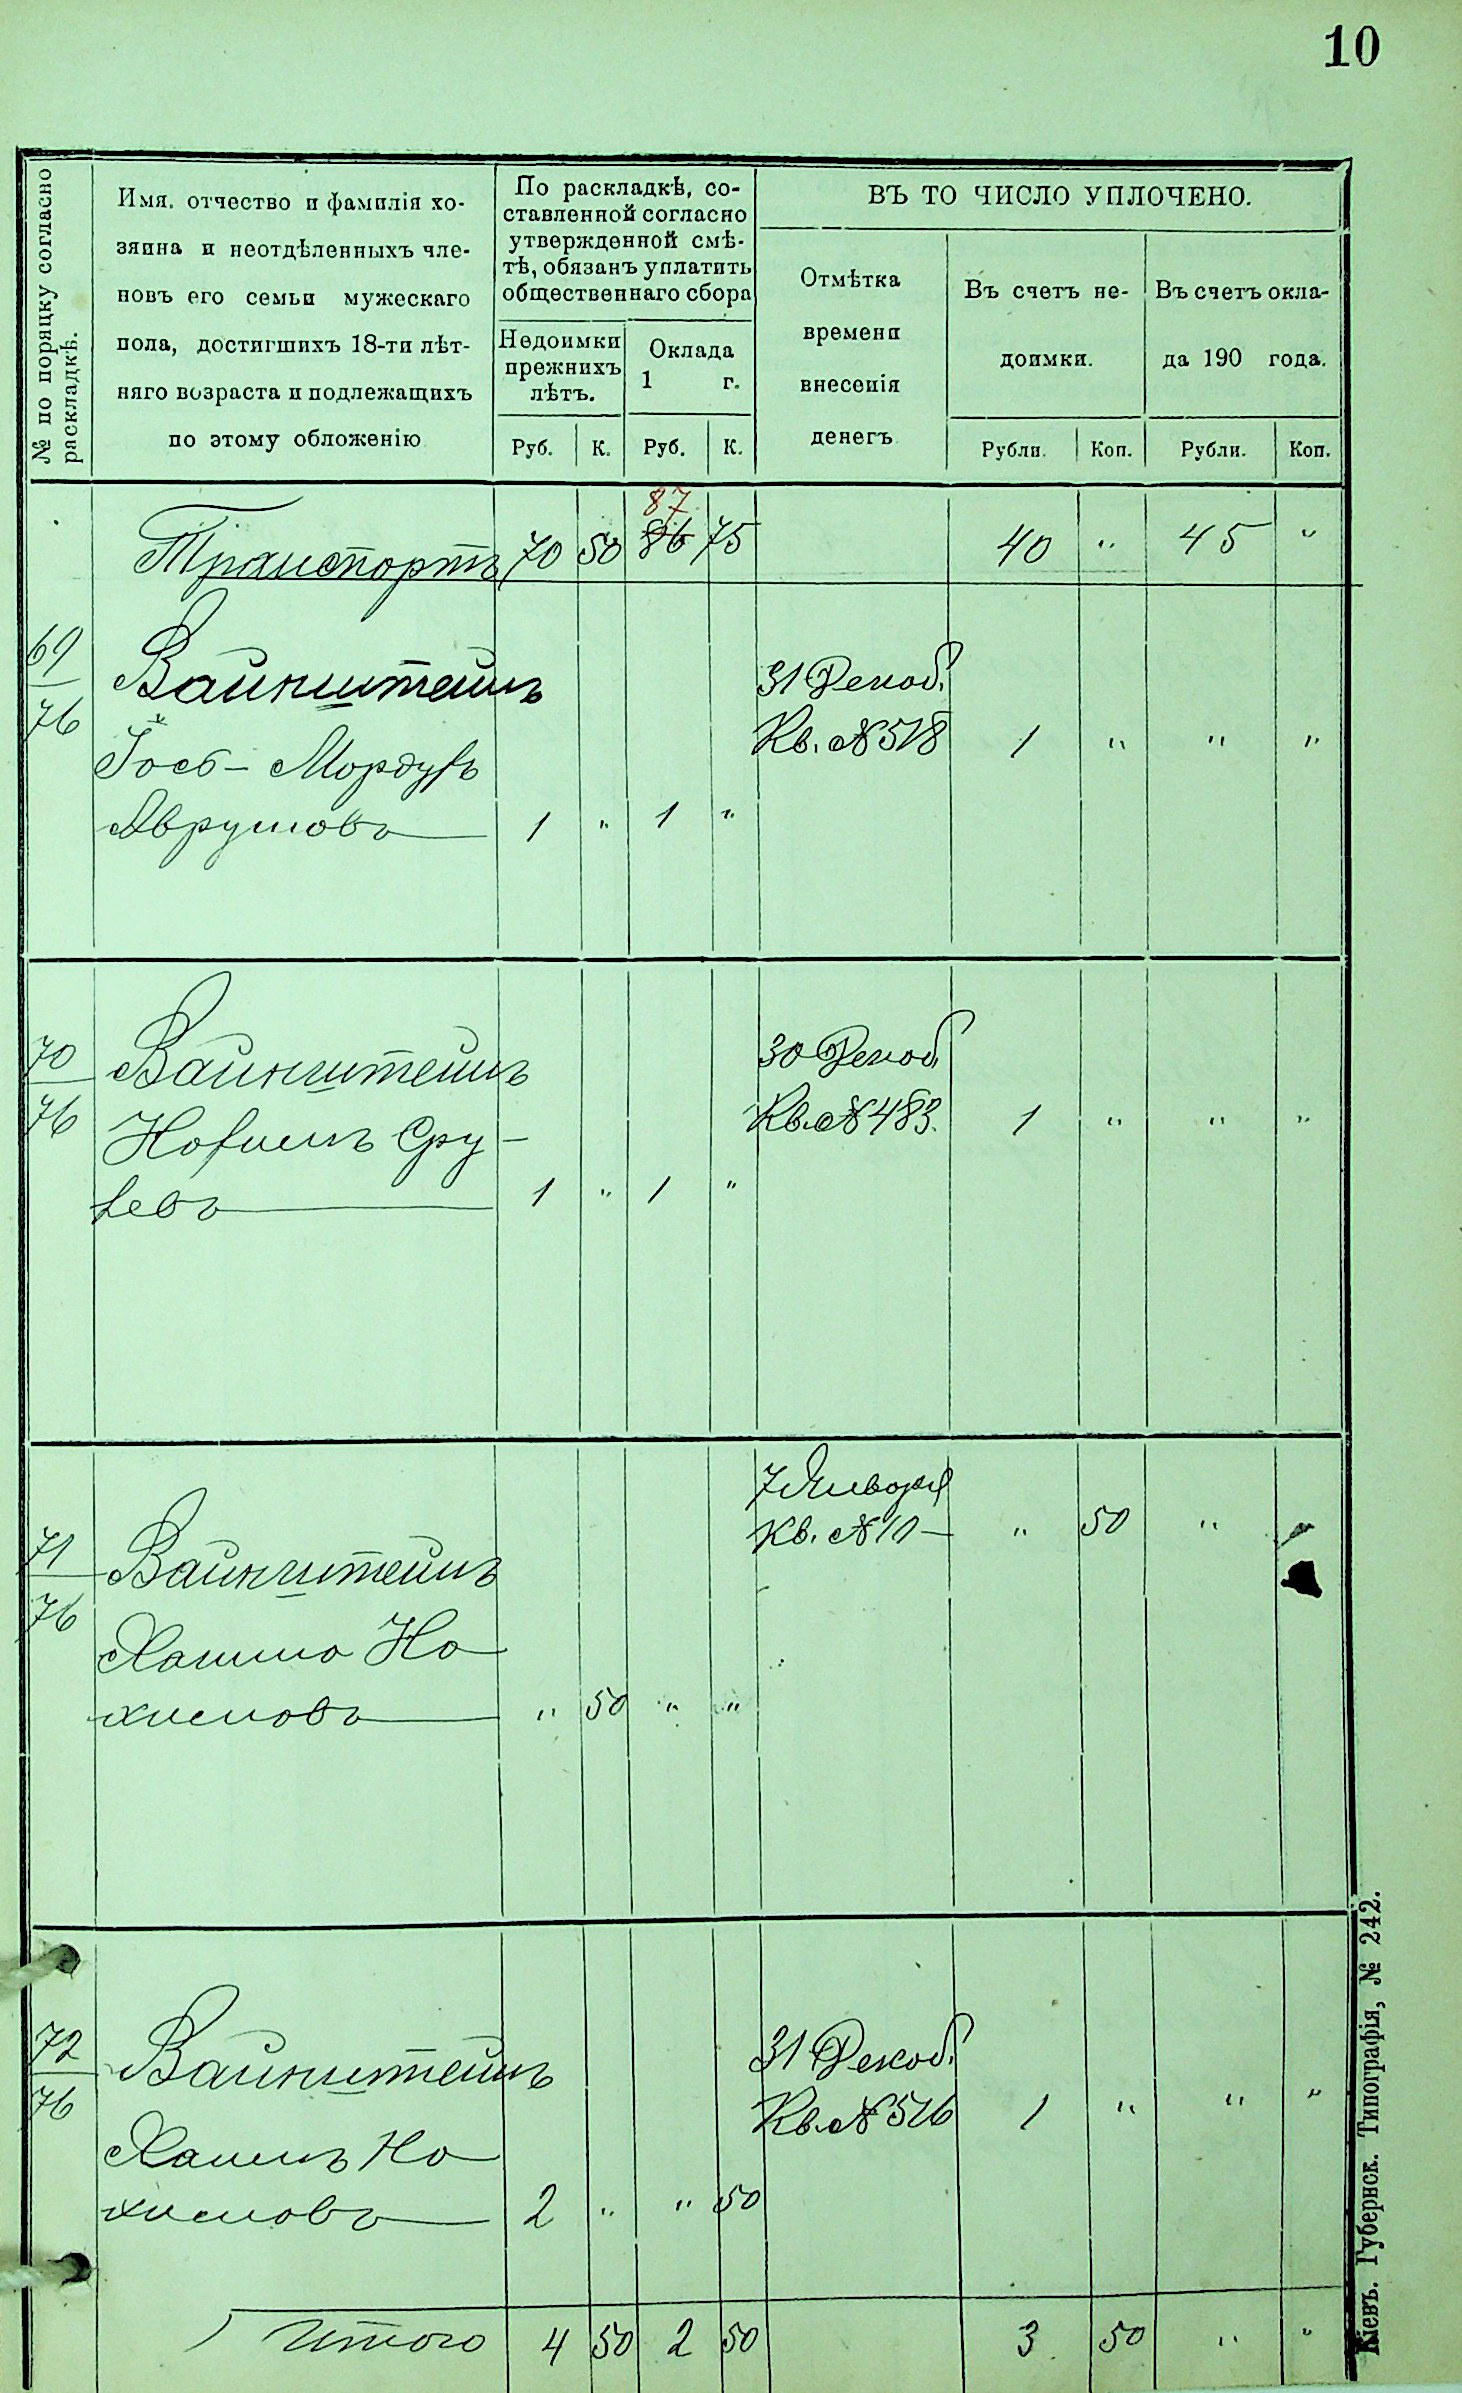 10
№ по порядку согласно
раскладкѣ.
Имя, отчество и фамилія хо-
зяина и неотдѣленныхъ чле-
новъ его семьи мужескаго
пола, достигшихъ 18-ти лѣт-
няго возраста и подлежащихъ
по этому обложенію
По раскладкѣ, со-
ставленной согласно
утвержденной смѣ-
тѣ, обязанъ уплатить
общественнаго сбора
Недоимки
прежнихъ
лѣтъ.
Оклада
1 г.
Руб. К. Руб. К.
ВЪ ТО ЧИСЛО УПЛОЧЕНО.
Отмѣтка
времени
внесенія
денегъ
Въ счетъ не-
доимки.
Въ счетъ окла-
да 190 года.
Рубли. Коп. Рубли. Коп.
87
Транспортъ 70 50 86 75 40 " 45 "
69
76
Вайнштейнъ
Іось-Мордух
Аврумовъ 1 " 1 "
31 Декаб.
Кв. № 518 1 " " "
70
76
Вайнштейнъ
Нохимъ Сру-
левъ 1 " 1 "
30 Декаб.
Кв. № 483. 1 " " "
71
76
Вайнштейнъ
Хаимъ Но
химовъ " 50 " "
7 Января
Кв. № 10 — " 50 " "
72
76
Вайнштейнъ
Хаимъ Но
химовъ 2 " " 50
31 Декаб.
Кв. № 516 1 " " "
Итого 4 50 2 50 3 50 " "
Кіевъ. Губернск. Типографія, № 242.